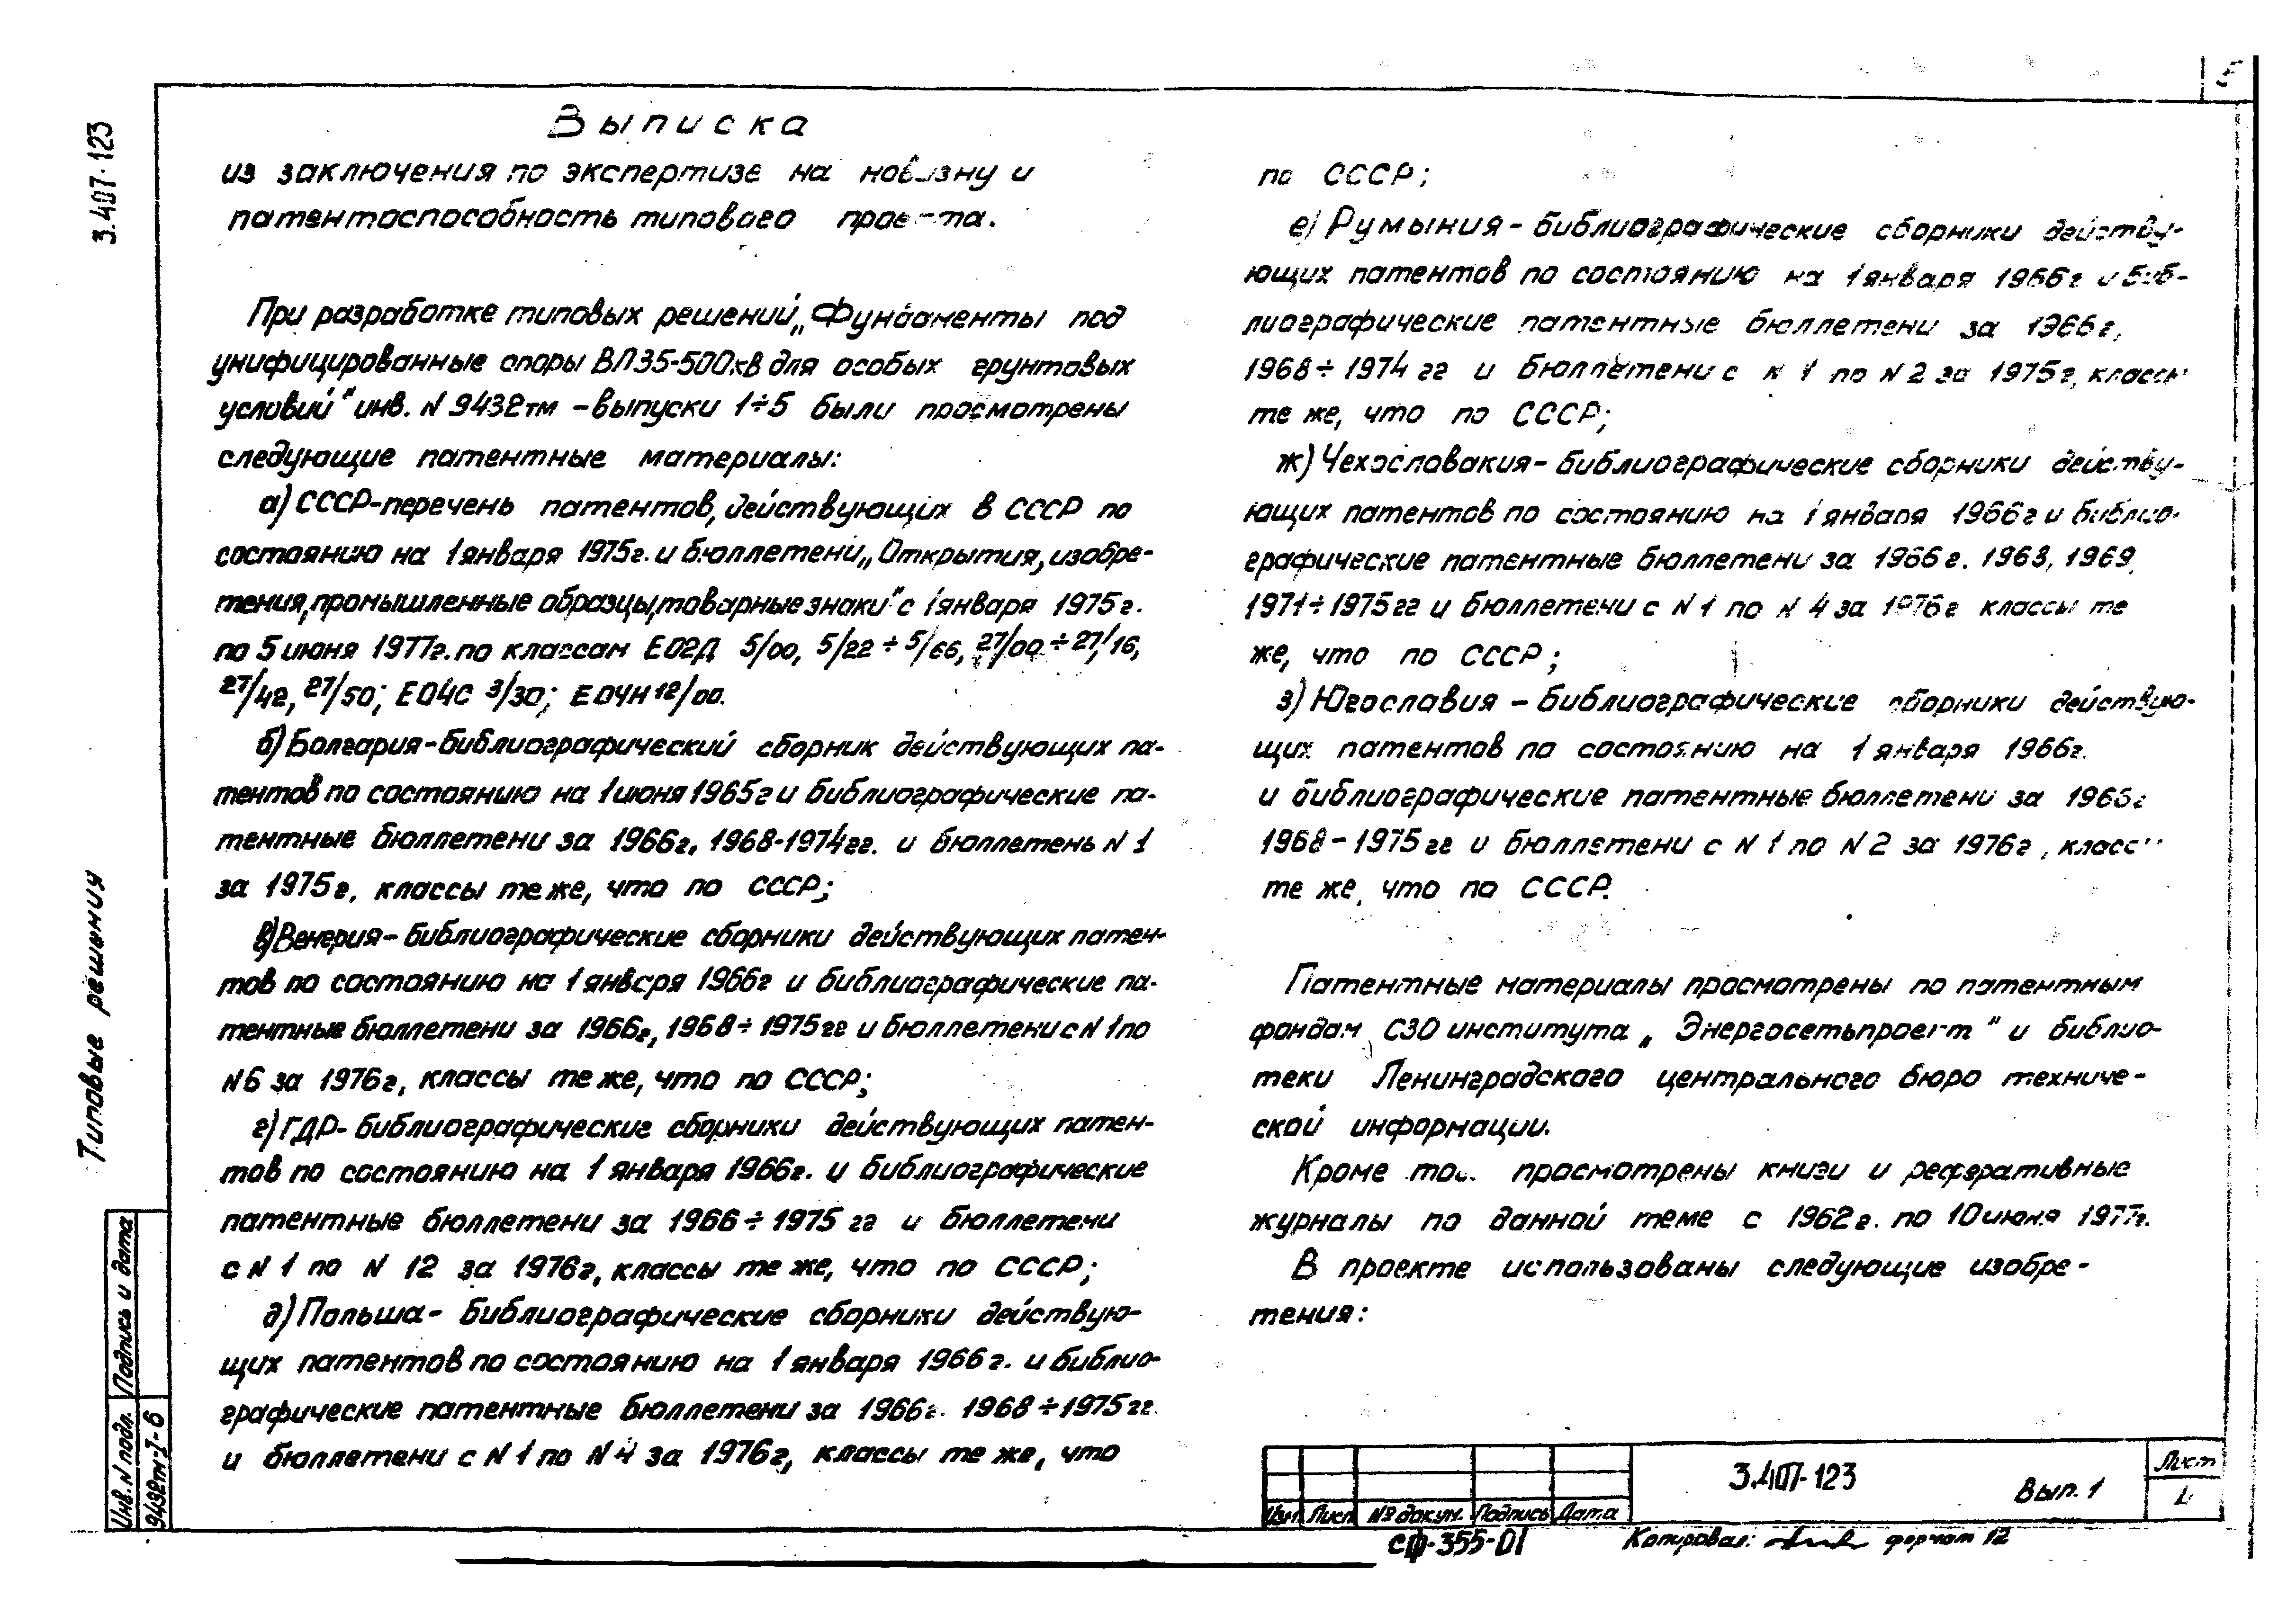 Выписка
из заключения по экспертизе на новизну и
патентоспособность типового проекта.
При разработке типовых решений „Фундаменты под
унифицированные опоры ВЛ35-500кв для особых грунтовых
условий" инв. N 9432тм -выпуски 1÷5 были просмотрены
следующие патентные материалы:
а) СССР-перечень патентов, действующих в СССР по
состоянию на 1 января 1975г. и бюллетени „Открытия, изобре-
тения, промышленные образцы, товарные знаки" с 1 января 1975г.
по 5 июня 1977г. по классам Е02Д 5/00, 5/22 ÷ 5/66, 27/00 ÷ 27/16,
27/42, 27/50; Е04С 3/30; Е04Н 12/00.
б) Болгария-библиографический сборник действующих па-
тентов по состоянию на 1 июня 1965г и библиографические па-
тентные бюллетени за 1966г, 1968-1974гг. и бюллетень N 1
за 1975г, классы те же, что по СССР;
в) Венгрия-библиографические сборники действующих патен-
тов по состоянию на 1 января 1966г и библиографические па-
тентные бюллетени за 1966г, 1968÷1975гг и бюллетени с N 1 по
N6 за 1976г, классы те же, что по СССР;
г) ГДР-библиографические сборники действующих патен-
тов по состоянию на 1 января 1966г. и библиографические
патентные бюллетени за 1966÷1975 гг и бюллетени
с N 1 по N 12 за 1976г, классы те же, что по СССР;
д) Польша- библиографические сборники действую-
щих патентов по состоянию на 1 января 1966г. и библио-
графические патентные бюллетени за 1966г. 1968÷1975гг.
и бюллетени с N 1 по N 4 за 1976г, классы те же, что
по СССР;
е) Румыния-библиографические сборники действу-
ющих патентов по состоянию на 1 января 1966г и биб-
лиографические патентные бюллетени за 1966г,
1968÷1974 гг и бюллетени с N 1 по N 2 за 1975г, классы
те же, что по СССР;
ж) Чехословакия-библиографические сборники действу-
ющих патентов по состоянию на 1 января 1966г и библио-
графические патентные бюллетени за 1966г. 1968, 1969,
1971÷1975гг и бюллетени с N 1 по N 4 за 1976г классы те
же, что по СССР;
з) Югославия - библиографические сборники действую-
щих патентов по состоянию на 1 января 1966г.
и библиографические патентные бюллетени за 1966г
1968-1975гг и бюллетени с N 1 по N 2 за 1976г, классы
те же, что по СССР.
Патентные материалы просмотрены по патентным
фондам СЗО института „Энергосетьпроект" и библио-
теки Ленинградского центрального бюро техниче-
ской информации.
Кроме просмотрены книги и реферативные
журналы по данной теме с 1962г. по 10 июня 1977г.
В проекте использованы следующие изобре-
тения:
3.407-123
Типовые решения
Инв. N подл. Подпись и дата
9432тм-I-6
Изм Лист № докум. Подпись Дата
3.407-123
Вып. 1
Лист
4
СФ-355-01
Копировал: формат 12